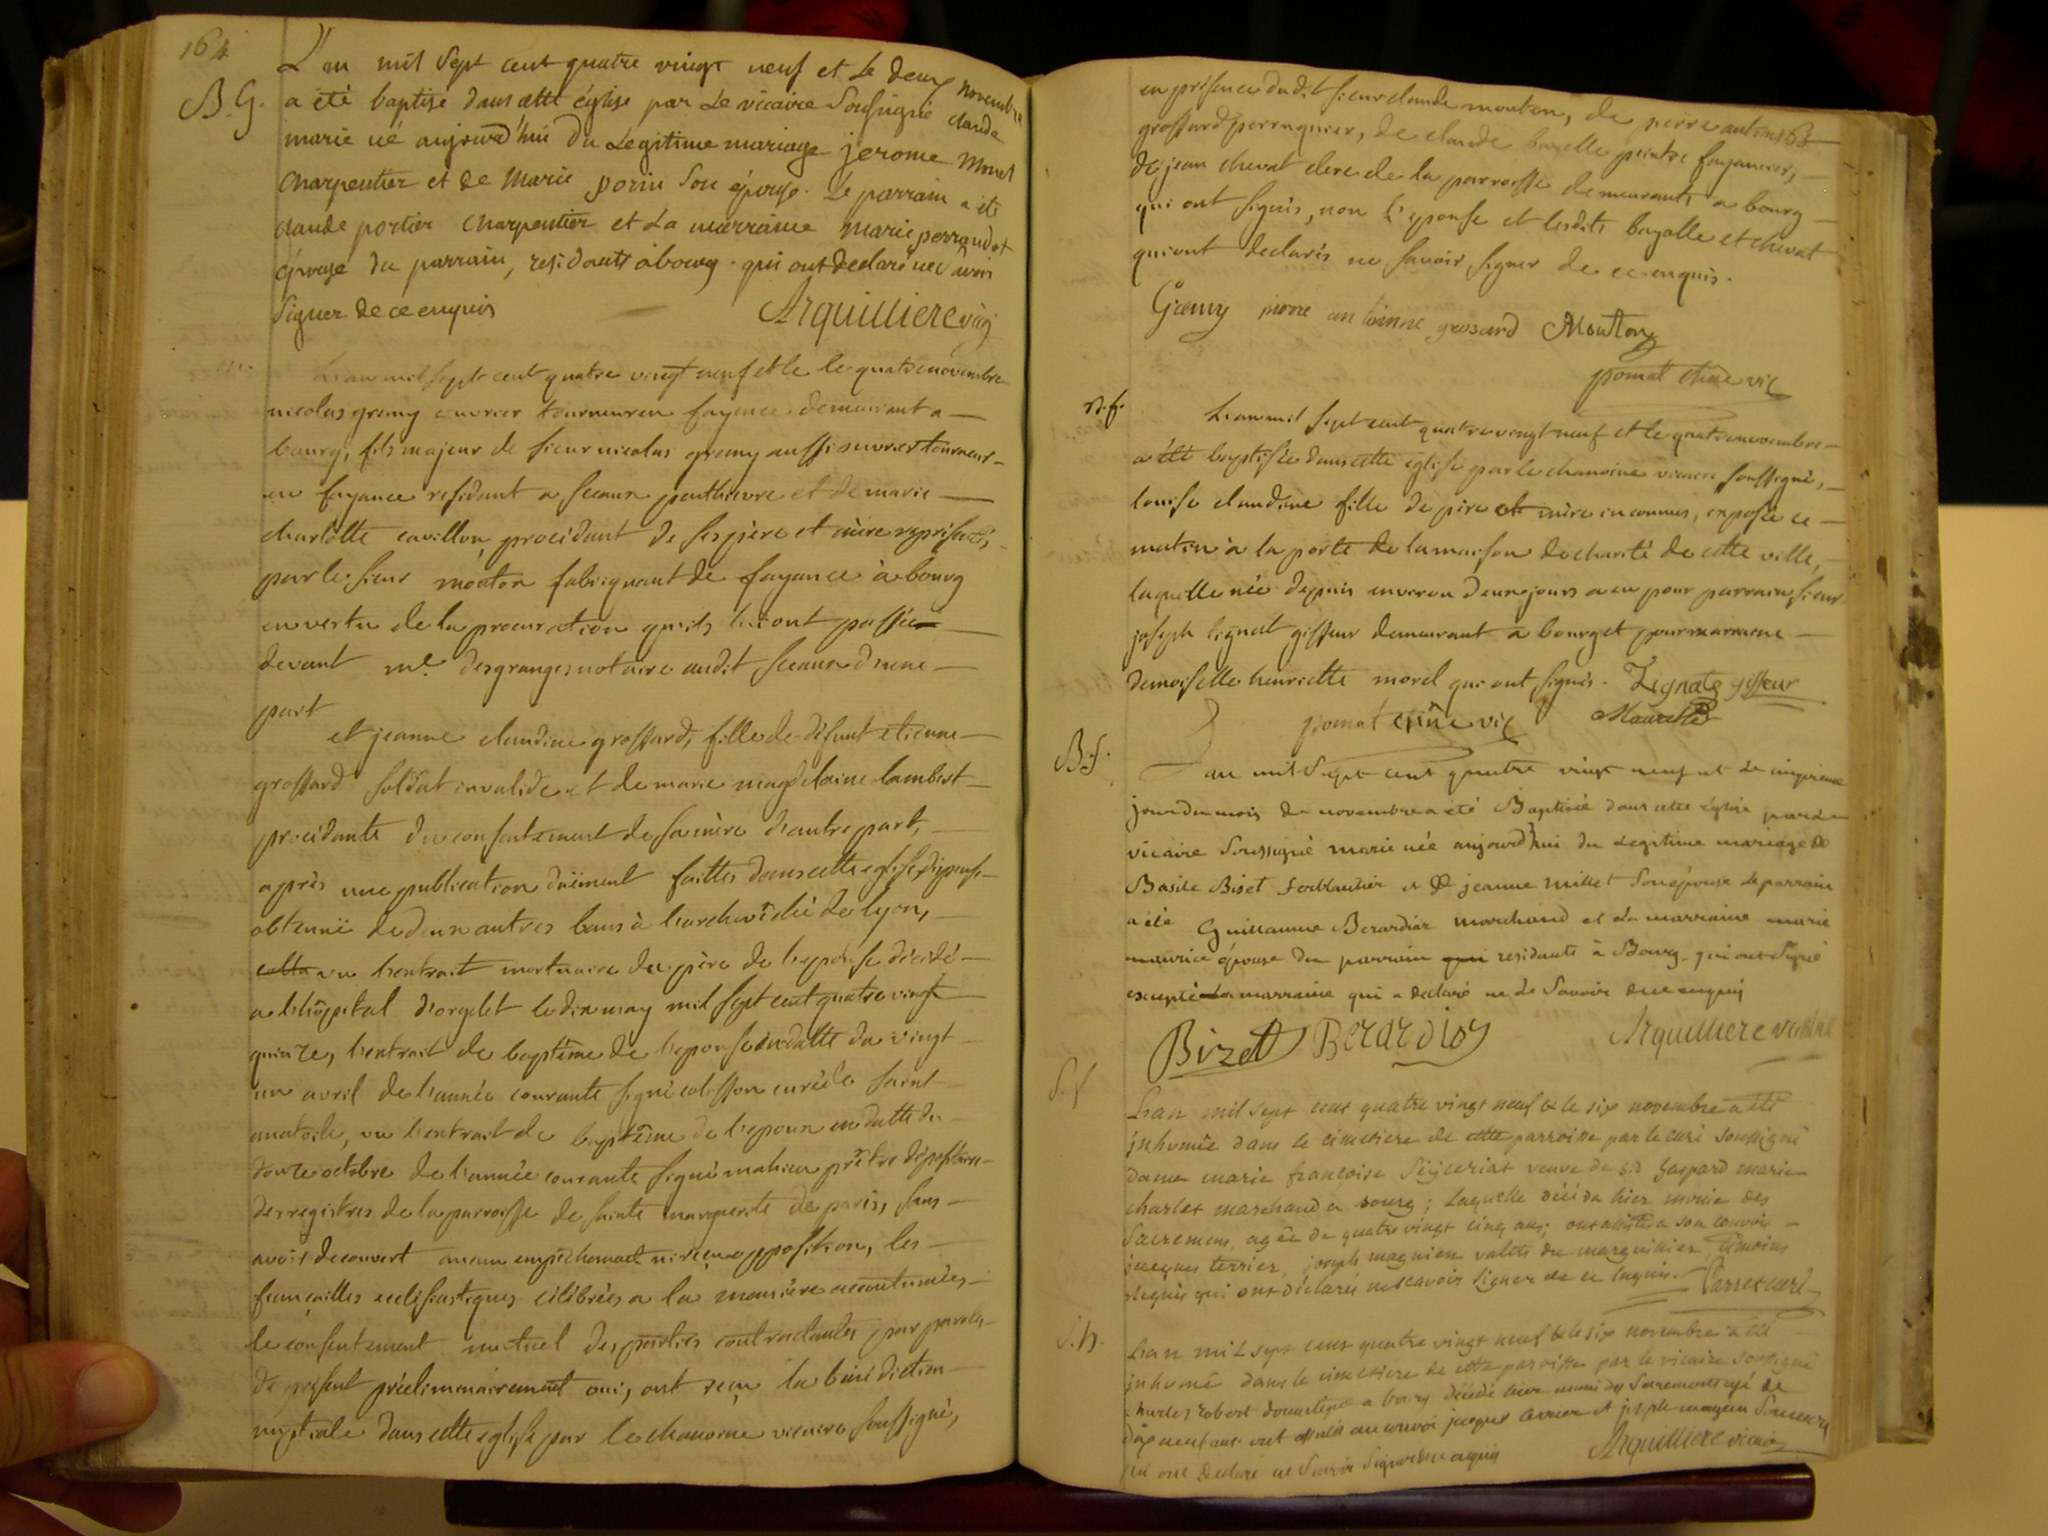 164
B. G.
L'an mil Sept cent quatre vingt neuf et Le deux novembre
a été baptisé dans cette église par Le vicaire Soussigné claude
marie né aujourd'hui du Legitime mariage jerome Monet
charpentier et de Marie son épouse. Le parrain a été
claude portier charpentier et La marraine marie perraudet
épouse du parrain, residants à bourg qui ont declaré ne savoir
Signer de ce enquis
Arquilliere vic
m.
L'an mil sept cent quatre vingt neuf et le le quatre novembre
nicolas gremy ouvrier tourneur en fayence demeurant a
bourg, fils majeur de sieur nicolas gremy aussi ouvrier tourneur
en fayance residant a sceaux penthievre et de marie
charlotte cavillon, procédant de ses père et mère représentés
par le sieur mouton fabriquant de fayance à bourg
en vertu de la procuration qu'ils lui ont passée
devant me. desgranges notaire audit sceaux d'une
part
et jeanne claudine grossard, fille de défunt etienne
grossard soldat invalide et de marie magdelaine lambert
procédante du consentement de sa mère d'autre part,
après une publication düement faittes dans cette eglise, dispense
obtenüe de deux autres bans à l'archevêché de lyon,
vu l'extrait mortuaire du père de l'épouse décédé
a l'hôpital d'orgelet le dix may mil sept cent quatre vingt
quinze, l'extrait de baptême de l'epouse en datte du vingt
un avril de l'année courante signé curé de saint
anatoile, vu l'extrait de baptême de l'epoux en datte du
douze octobre de l'année courante signé mahieu prêtre dépositaire
des registres de la parroisse de sainte marguerite de paris, sans
avoir decouvert aucun empêchement ni reçu opposition, les
fiançailles ecclésiastiques célébrées a la manière accoutumée,
le consentement mutuel des parties contractantes par paroles
de présent préliminairement oui, ont reçu la bénédiction
nuptiale dans cette eglise par le chanoine vicaire soussigné,
165
en présence dudit sieur claude mouton, de pierre antoine
grossard perruquier, de claude bazelle peintre fayancier,
de jean chevat clerc de la parroisse demeurants a bourg
qui ont signés, non l'epouse et lesdits bazelle et chevat
qui ont declarés ne savoir signer de ce enquis.
Gremy pierre antoinne grosard Mouton
pomat chne vic
B. f.
L'an mil sept cent quatre vingt neuf et le quatre novembre
a été baptisée dans cette eglise par le chanoine vicaire soussigné,
louise claudine fille de père et mère inconnus, exposée ce
matin à la porte de la maison de charité de cette ville,
laquelle née depuis environ deux jours a eu pour parrain sieur
joseph lignat giffeur demeurant a bourg et pour marraine
demoiselle henriette morel qui ont signés. Lignat giffeur
pomat chne vic
B. f.
L'an mil Sept cent quatre vingt neuf et Le cinquieme
jour du mois de novembre a été Baptisée dans cette Eglise par Le
vicaire Soussigné marie née aujourd'hui du Legitime mariage de
Basile Biset ferblantier et de jeanne millet Son épouse Le parrain
a été Guillaume Berardier marchand et La marraine marie
maurice épouse du parrain qui residants à Bourg. qui ont Signé
excepté La marraine qui a declaré ne Le Savoir de ce enquis
Bizet Berardier Arquilliere
S. f
L'an mil sept cent quatre vingt neuf & le six novembre a été
inhumée dans le cimetiere de cette parroisse par le curé soussigné
dame marie françoise veuve de Sr Gaspard marie
charles marchand a bourg; laquelle décéda hier munie des
Sacremens, agée de quatre vingt cinq ans; ont assisté a son convoi
jacques terrier, joseph magnien valets du marguillier, témoins
requis qui ont déclarés ne scavoir signer de ce enquis. curé
S. h.
L'an mil sept cent quatre vingt neuf & le six novembre a été
inhumé dans le cimetiere de cette paroisse par le vicaire soussigné
charles robert domestique a bourg décédé hier muni des Sacrements agé de
dix neuf ans ont assisté au convoi jacques terrier et joseph magnien
qui ont declaré ne Savoir Signer de ce enquis
Arquilliere vicaire